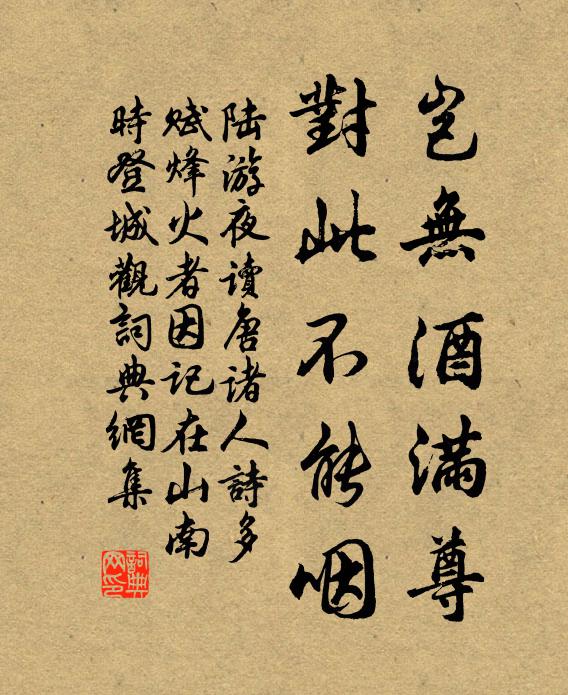 豈無酒滿尊
對此不能咽
陆游夜讀唐諸人詩多
赋烽火者因記在山南
時登城觀詞典網集
詞典網印